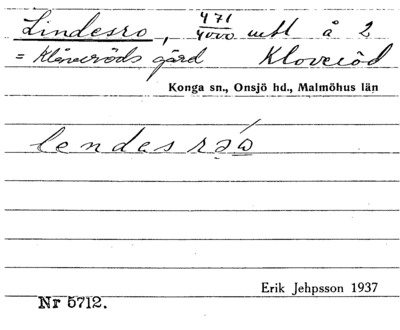 Lindesro, 471/4000 mtl å 2
= Klåveröds gård Kloveröd
Konga sn., Onsjö hd., Malmöhus län
Erik Jehpsson 1937
Nr 5712.